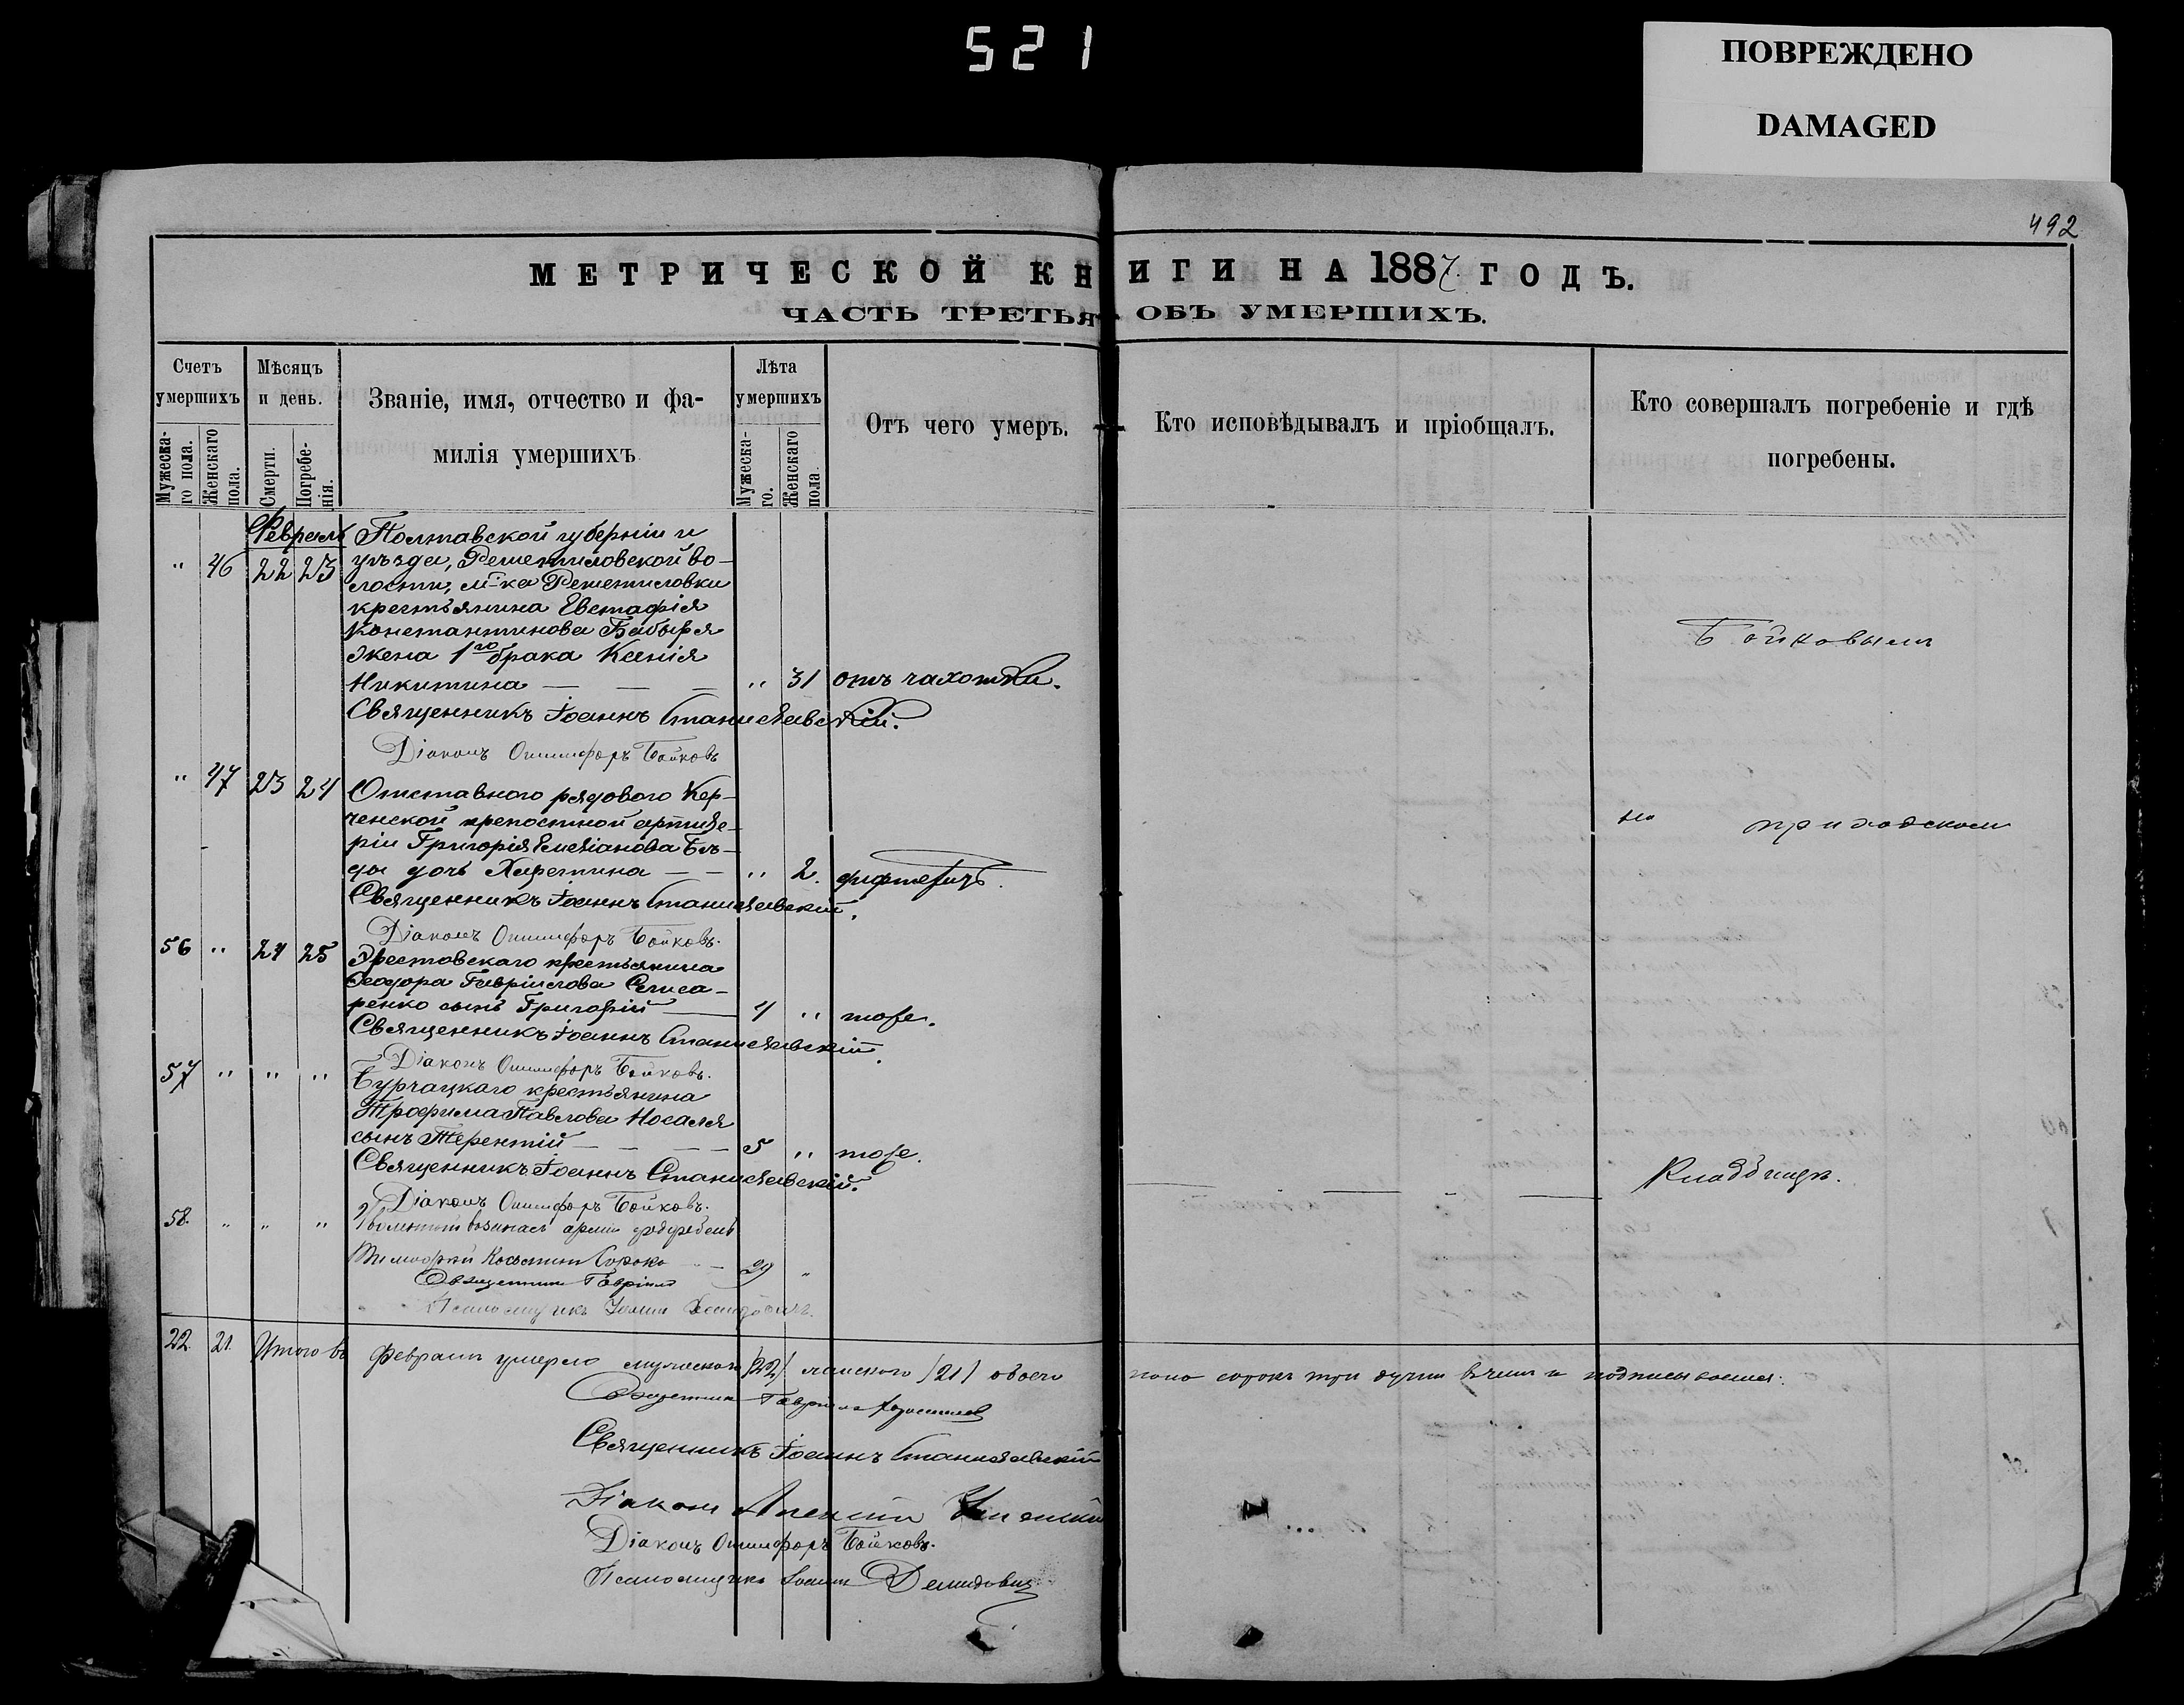 521
ПОВРЕЖДЕНО
DAMAGED
492
МЕТРИЧЕСКОЙ КНИГИ НА 1887 ГОДЪ.
ЧАСТЬ ТРЕТЬЯ ОБЪ УМЕРШИХЪ.
Счетъ умершихъ
Мужескаго пола.
Женскаго пола.
Мѣсяцъ и день.
Смерти.
Погребенія.
Званіе, имя, отчество и фамилія умершихъ
Лѣта умершихъ
Мужескаго.
Женскаго пола
Отъ чего умеръ.
Кто исповѣдывалъ и пріобщалъ.
Кто совершалъ погребеніе и гдѣ погребены.
Февраль
" 46 22 23
Полтавской губерніи и
уѣзда, Решетиловской во-
лости, м-ка Решетиловки
крестьянина Евстафія
Константинова Бабыря
жена 1го брака Ксенія
Никитина — — — " 31 отъ чахотки.
Священникъ Іоаннъ Станиславскій.
Діаконъ Онисифоръ Бойковъ
" 47 23 24 Отставного рядового Кер-
ченской крепостной артиле-
ріи Григорія Емеліанова Бѣ-
ды дочь Харитина — — " 2. дифтеритъ.
Священникъ Іоаннъ Станиславскій.
Діаконъ Онисифоръ Бойковъ.
56 " 24 25 Эрестовскаго крестьянина
Феодора Гавріилова Слиса-
ренко сынъ Григорій — 4 " тоже.
Священникъ Іоаннъ Станиславскій.
Діаконъ Онисифоръ Бойковъ.
57 " " " Бурчацкаго крестьянина
Трофима Павлова Носаля
сынъ Терентій — — — 5 " тоже.
Священникъ Іоаннъ Станиславскій.
Діаконъ Онисифоръ Бойковъ.
58. " " "
Тимофей Сорока — 29 "
Священникъ Гавріилъ
Псаломщикъ Іоаннъ Демидовичъ.
Бойковымъ
на приходскомъ
кладбищѣ.
22. 21. Итого въ февралѣ умерло мужеского (22) женского (21) обоего пола сорокъ три душы въ чемъ и подписываемся:
Священникъ Гавріилъ
Священникъ Іоаннъ Станиславскій
Діаконъ Алексій
Діаконъ Онисифоръ Бойковъ.
Псаломщикъ Іоаннъ Демидовичъ